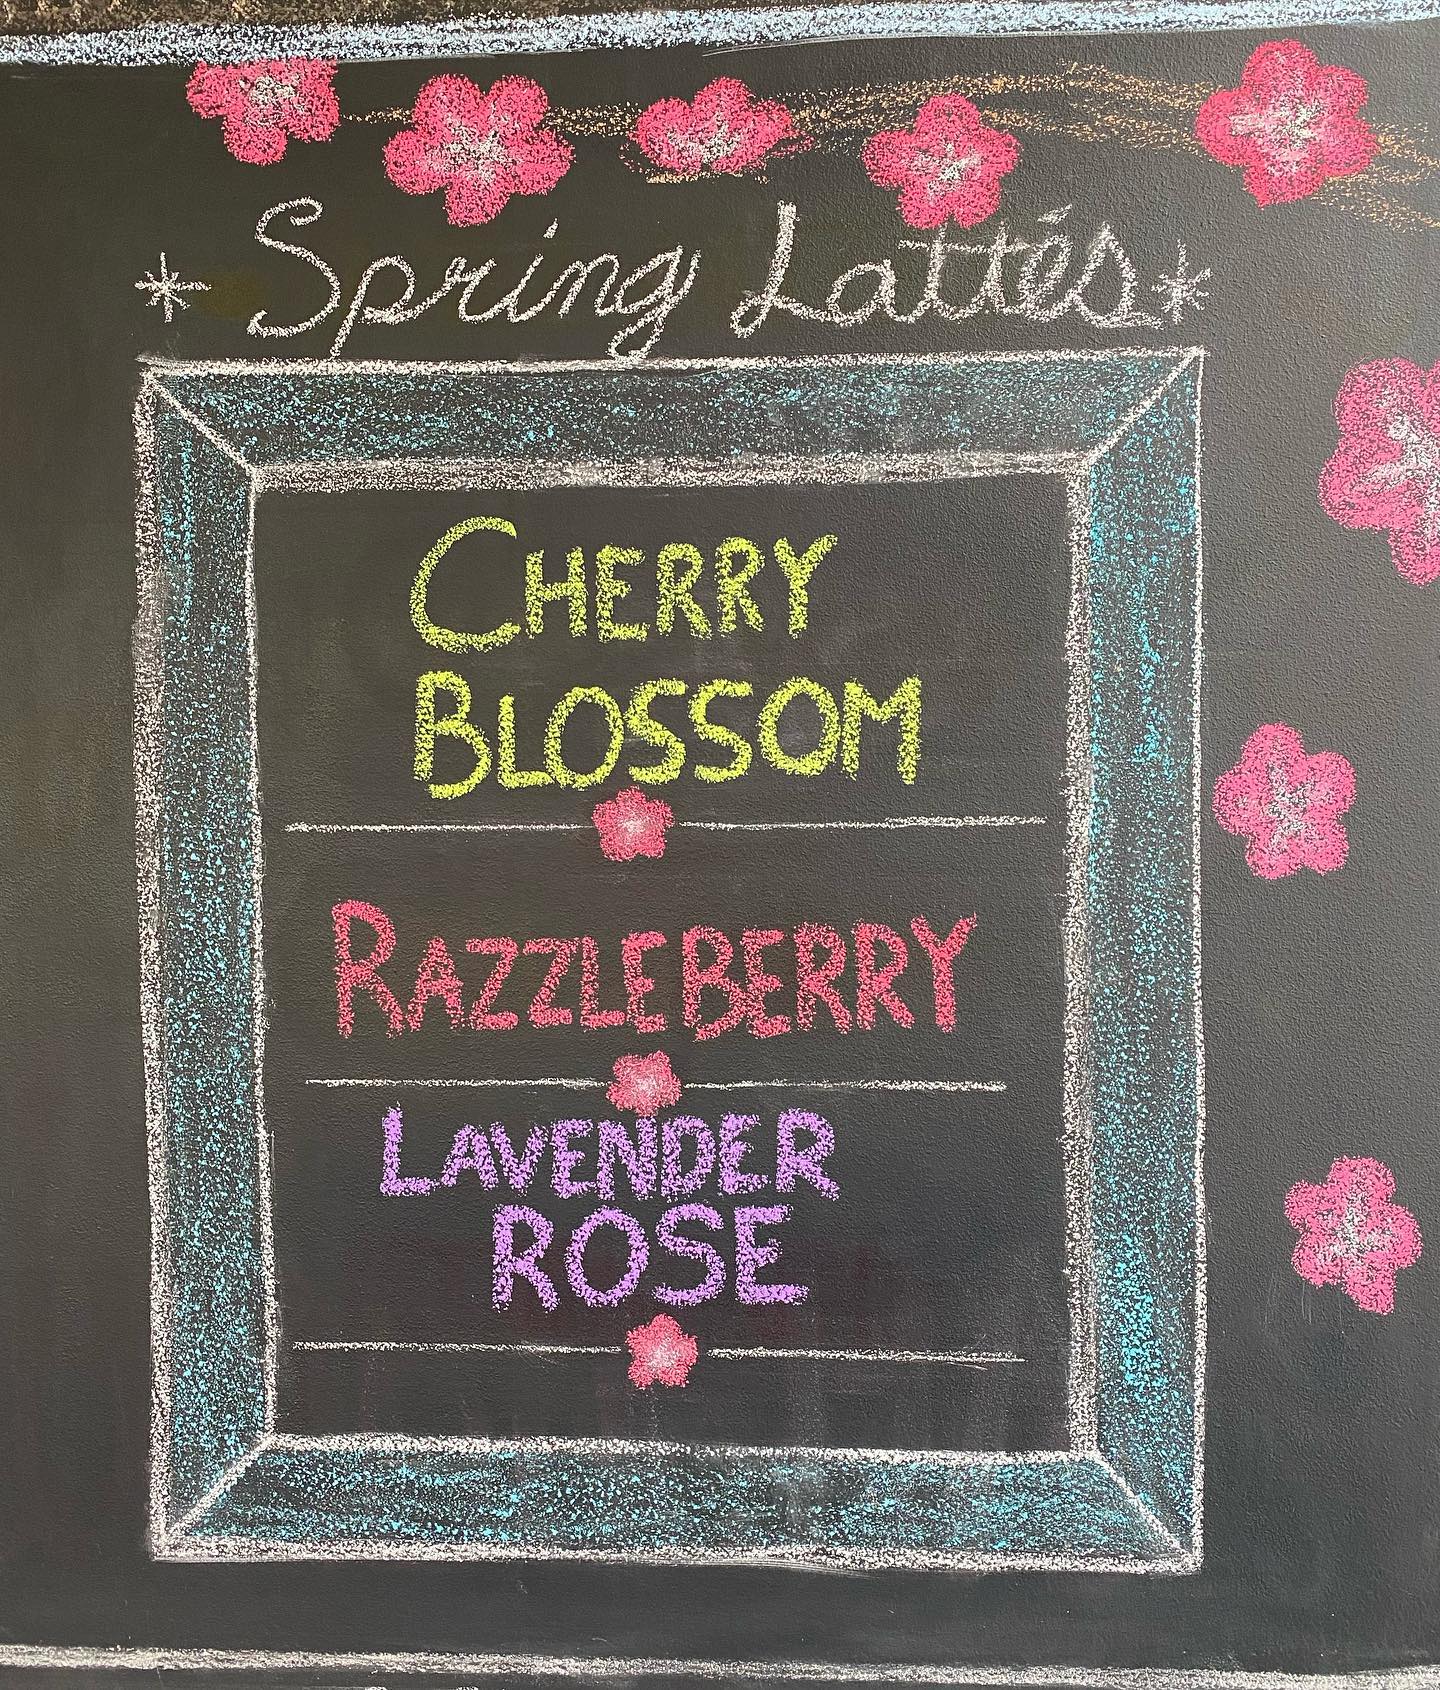 * Spring Lattés *
CHERRY
BLOSSOM
RAZZLEBERRY
LAVENDER
ROSE